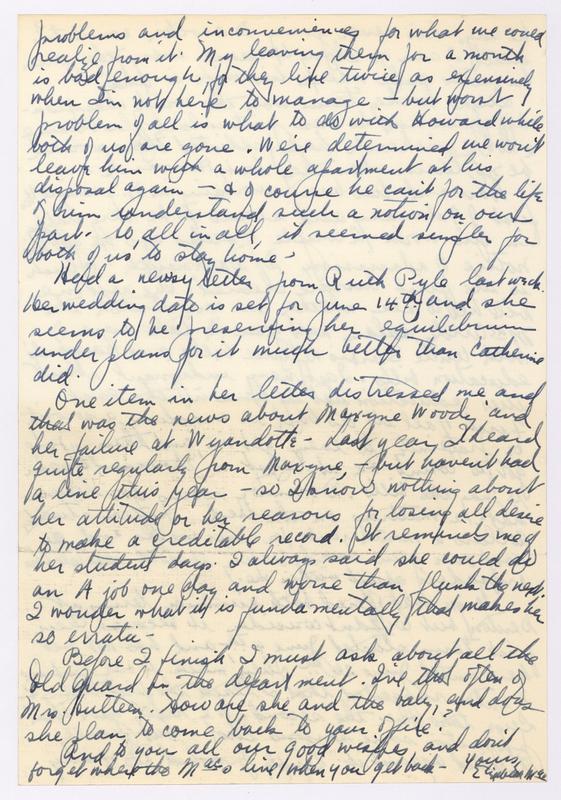 problems and inconveniences for what we could
realize from it. My leaving them for a month
is bad enough, for they live twice as expensively
when I'm not here to manage. - but worst
problem of all is what to do with Howard while
both of us are gone. We're determined we won't
leave him with a whole apartment at his
disposal again - & of course he can't for the life
of him understand such a notion on our
part. So all in all, it seemed simpler for
both of us to stay home.
Had a newsy letter from Ruth Pyle last week.
Her wedding date is set for June 14th and she
seems to be preserving her equilibrium
under plans for it much better than Catherine
did.
One item in her letter distressed me and
that was the news about Maxyne Woody and
her failure at Wyandotte - Last year, I heard
quite regularly from Maxyne, - but haven't had
a line this year - so I know nothing about
her attitude or her reasons for losing all desire
to make a creditable record. It reminds me of
her student days. I always said she could do
an A job one day and worse than flunk the next.
I wonder what it is fundamentally that makes her
so erratic -
Before I finish I must ask about all the
Old Guard in the department. I've tho't often of
Mrs. How are she and the baby, and does
she plan to come back to your office?
And to you all our good wishes, and don't
forget where the Macs live when you get back - Yours,
Elizabeth